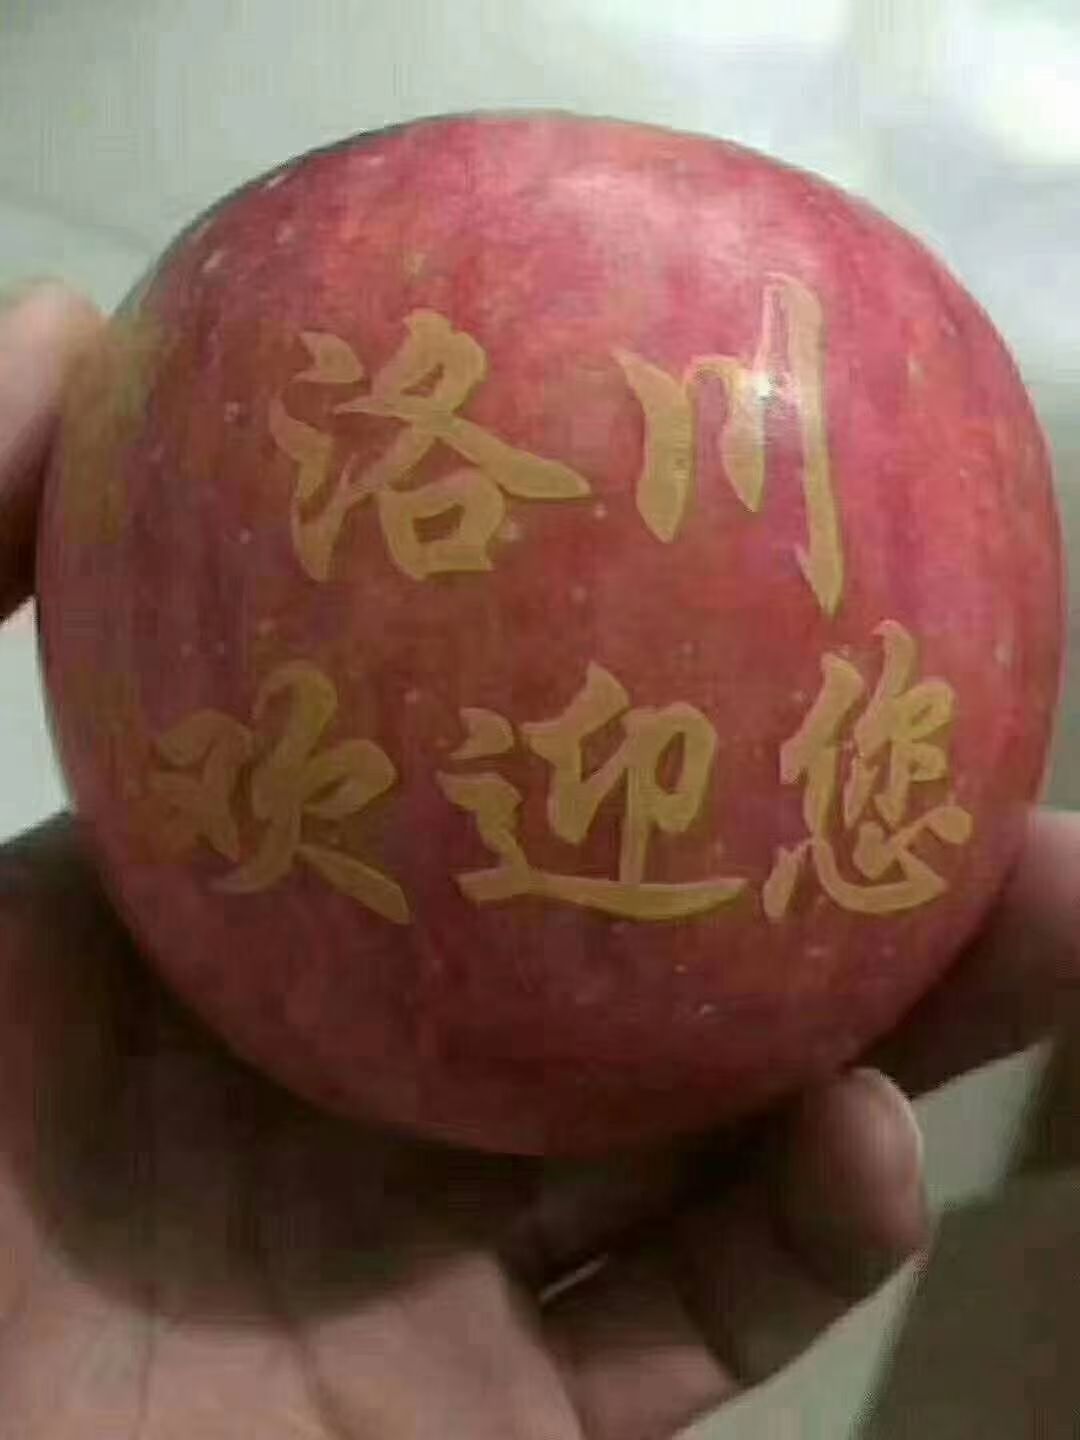 洛川
欢迎您